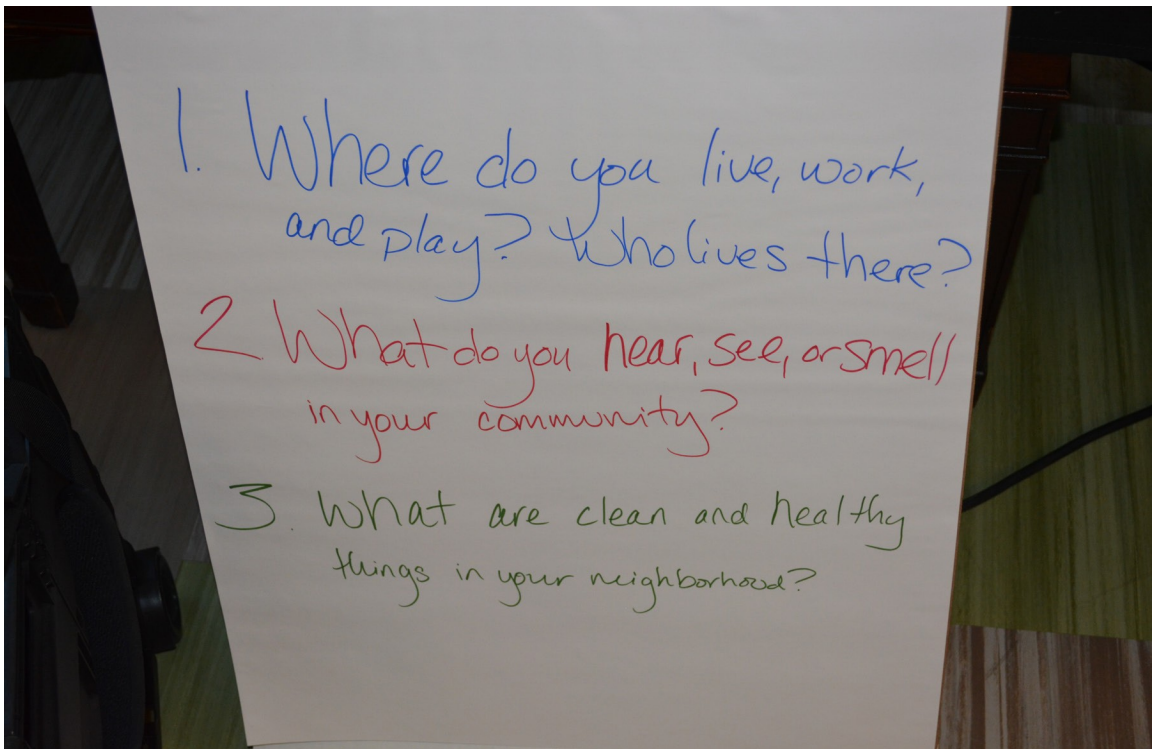 1. Where do you live, work,
and play? Who lives there?
2. What do you hear, see, or smell
in your community?
3. What are clean and healthy
things in your neighborhood?